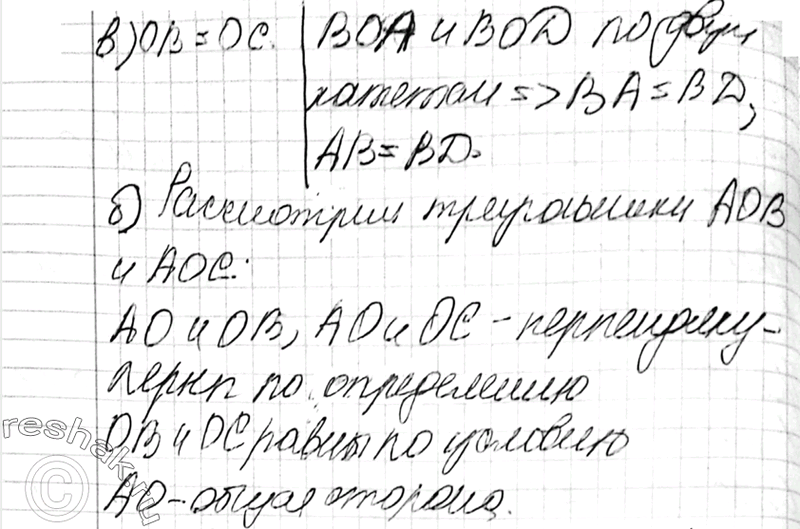 в) OB = OC. | BOA и BOD по двум
катетам => BA = BD,
AB = BD.
б) Рассмотрим треугольники AOB
и AOC:
AO и OB, AO и OC - перпендику-
лярны по определению
OB и OC равны по условию
AO - общая сторона.
reshak.ru